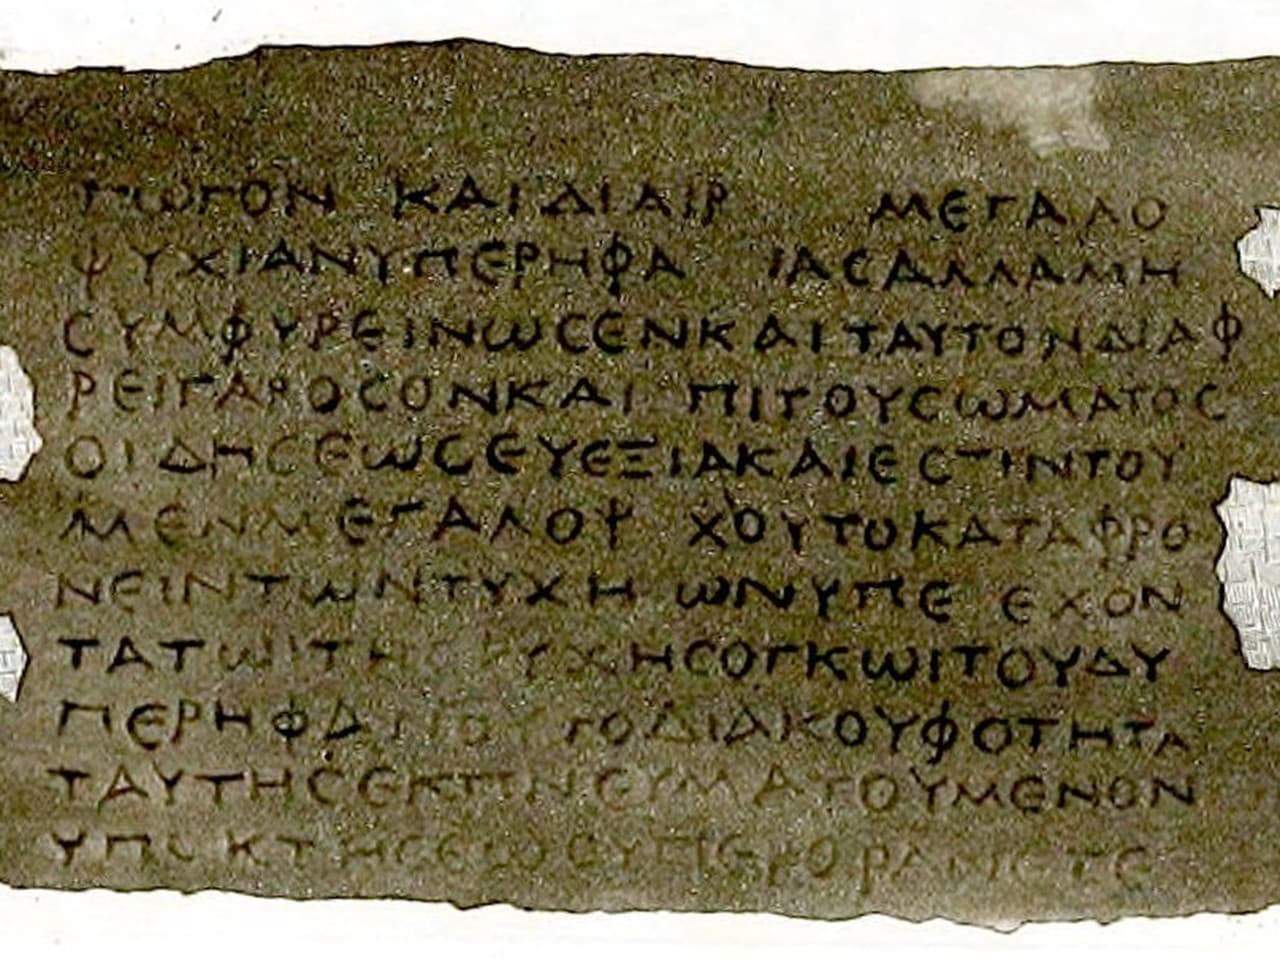 ΓΩΓΟΝ ΚΑΙΔΙΑΙΡ ΜΕΓΑΛΟ
ΨΥΧΙΑΝΥΠΕΡΗΦΑ ΙΑϹΑΛΛΑΜΗ
ϹΥΜΦΥΡΕΙΝΩϹΕΝΚΑΙΤΑΥΤΟΝΔΙΑΦ
ΡΕΙΓΑΡΟϹΟΝΚΑΙ ΠΙΤΟΥϹΩΜΑΤΟϹ
ΟΙΔΗϹΕΩϹΕΥΕΞΙΑΚΑΙΕϹΤΙΝΤΟΥ
ΜΕΝΜΕΓΑΛΟΨ ΧΟΥΤΟΚΑΤΑΦΡΟ
ΝΕΙΝΤΩΝΤΥΧΗ ΩΝΥΠΕ ΕΧΟΝ
ΤΑΤΩΙΤΗϹ ΥΧΗϹΟΓΚΩΙΤΟΥΔΥ
ΠΕΡΗΦΑΝΟΥ ΤΟΔΙΑΚΟΥΦΟΤΗΤΑ
ΤΑΥΤΗϹΕΚΠΝΕΥΜΑΤΟΥΜΕΝΟΝ
ΥΠΟΚΤΗϹΕΩϹ